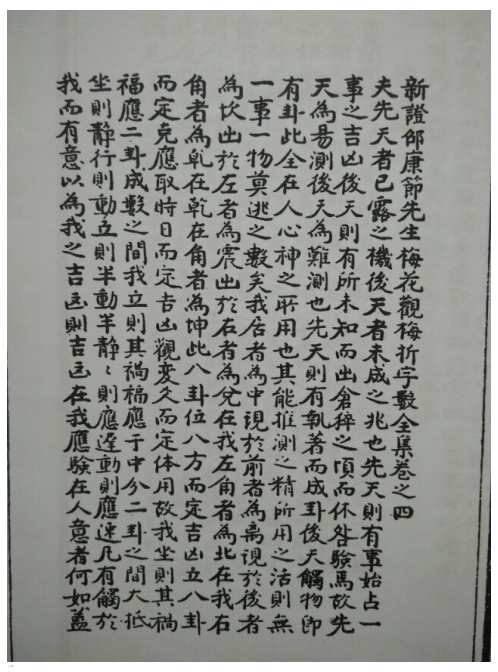 新證邵康節先生梅花觀梅拆字數全集卷之四
夫先天者已露之機後天者未成之兆也先天則有事始占一
事之吉凶後天則有所未知而出倉猝之頃而休咎験焉故先
天為易測後天為難測也先天則有執著而成卦後天觸物即
有卦此全在人心神之所用也其能推測之精所用之活則無
一事一物莫逃之數矣我居者為中現於前者為离現於後者
為坎出於左者為震出於右者為兌在我左角者為北在我右
角者為乹在乹在角者為坤此八卦位八方而定吉凶立八卦
而定克應取時日而定吉凶觀变爻而定体用故我坐則其禍
福應二卦成數之間我立則其禍福應于中分二卦之間大抵
坐則静行則動立則半動半静〻則應遅動則應速凡有觸於
我而有意以為我之吉凶則吉凶在我應験在人意者何如蓋